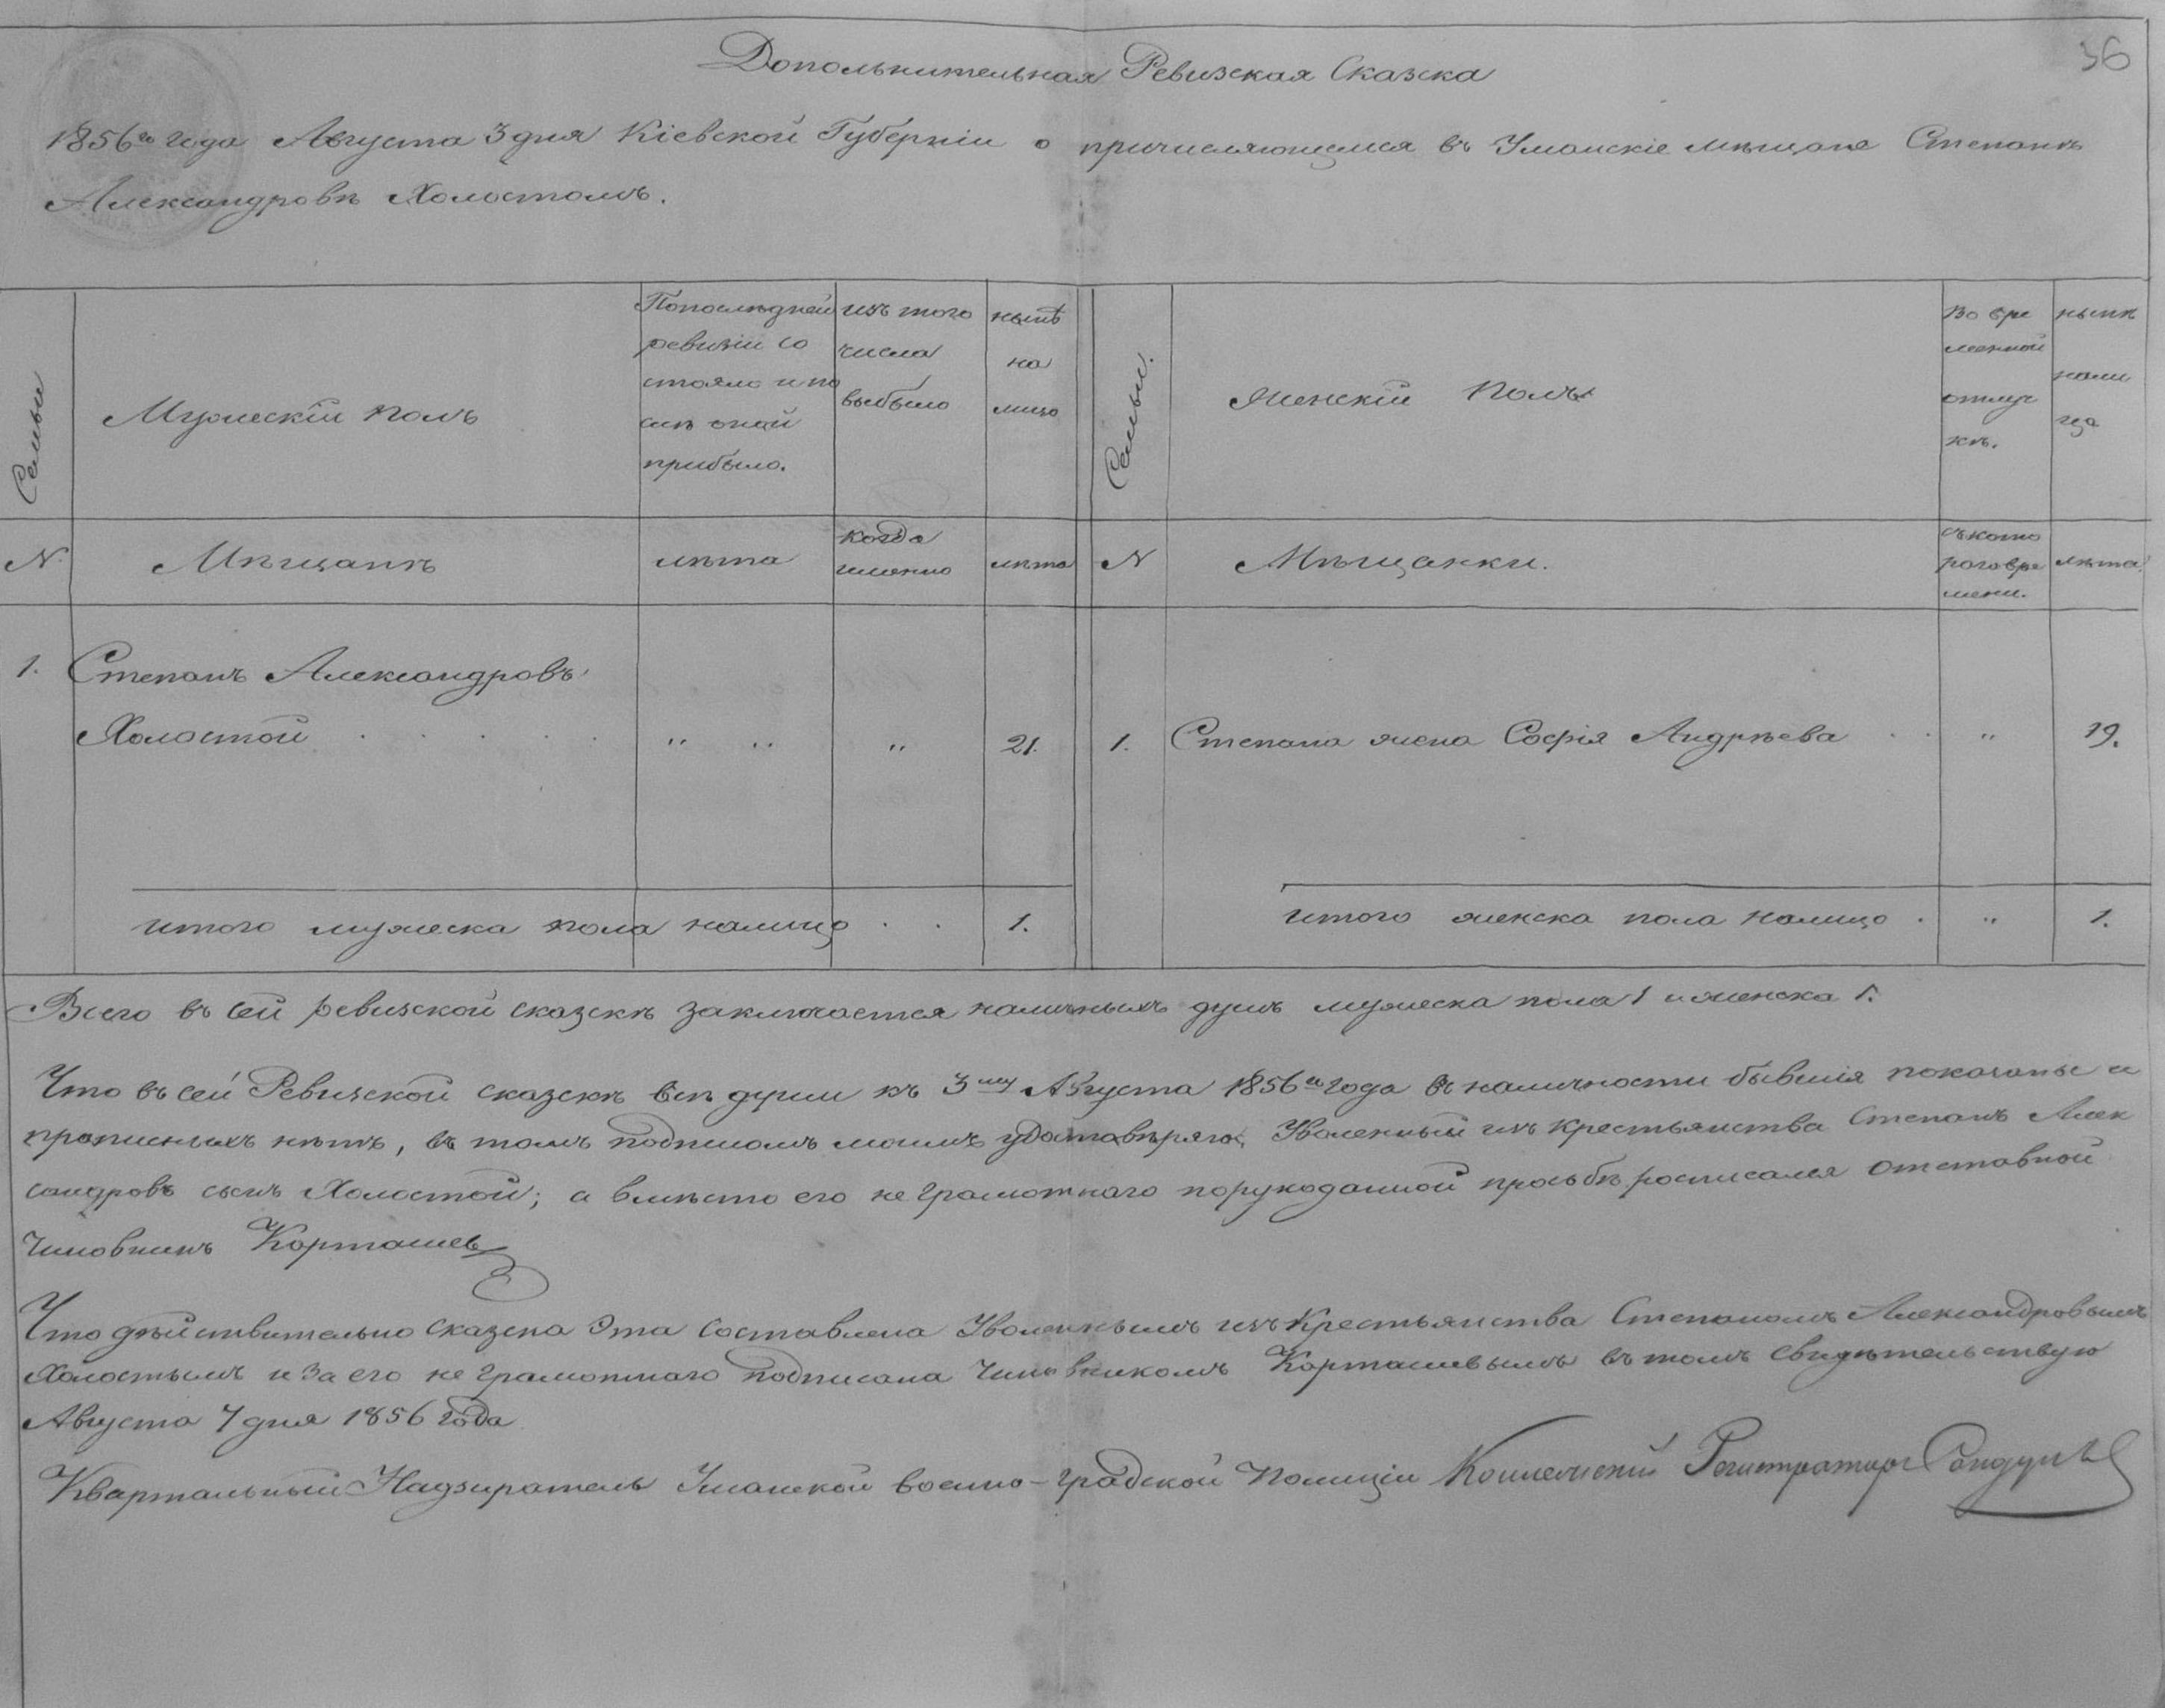 36
Дополнительная Ревизская Сказка
1856го года Августа 3 дня Кіевской Губерніи о причисляющемся въ Уманскіе мѣщане Степанѣ
Александровѣ Холостомъ.
Семьи
Мужескій полъ
По послѣдней
ревизіи со
стояло и по
слѣ оной
прибыло.
изъ того
числа
выбыло
нынѣ
на
лицо
Семьи.
Женскій полъ
Во вре
менной
отлуч
кѣ.
нынѣ
нали
цо
N.
Мѣщанъ
лѣта
когда
именно
лѣта
N
Мѣщанки.
съ кото
раго вре
мени.
лѣта.
1. Степанъ Александровъ
Холостой . . . . . „ „ „ 21.
1. Степана жена Софія Андрѣева . . „ 19.
итого мужеска пола налицо . . 1.
итого женска пола налицо . „ 1.
Всего въ сей ревизской сказкѣ заключается наличныхъ душъ мужеска пола 1 и женска 1.
Что въ сей Ревизской сказкѣ всѣ души къ 3му Августа 1856го года въ наличности бывшія показаны и
прописныхъ нѣтъ, въ томъ подписомъ моимъ удостовѣряю, Уволенный изъ крестьянства Степанъ Алек
сандровъ сынъ Холостой; а вмѣсто его не грамотнаго по рукоданной просьбѣ росписался отставной
Чиновникъ Карташев
Что дѣйствительно сказка эта составлена Уволеннымъ изъ Крестьянства Степаномъ Александровымъ
Холостымъ и за его не грамотнаго подписана Чиновникомъ Карташевымъ въ томъ свидѣтельствую
Августа 7 дня 1856 года
Квартальный Надзиратель Уманской военно-градской Полиціи Коллежскій Регистраторъ